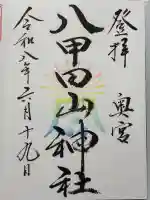 登拝 奥宮
八甲田山神社
令和八年六月十九日